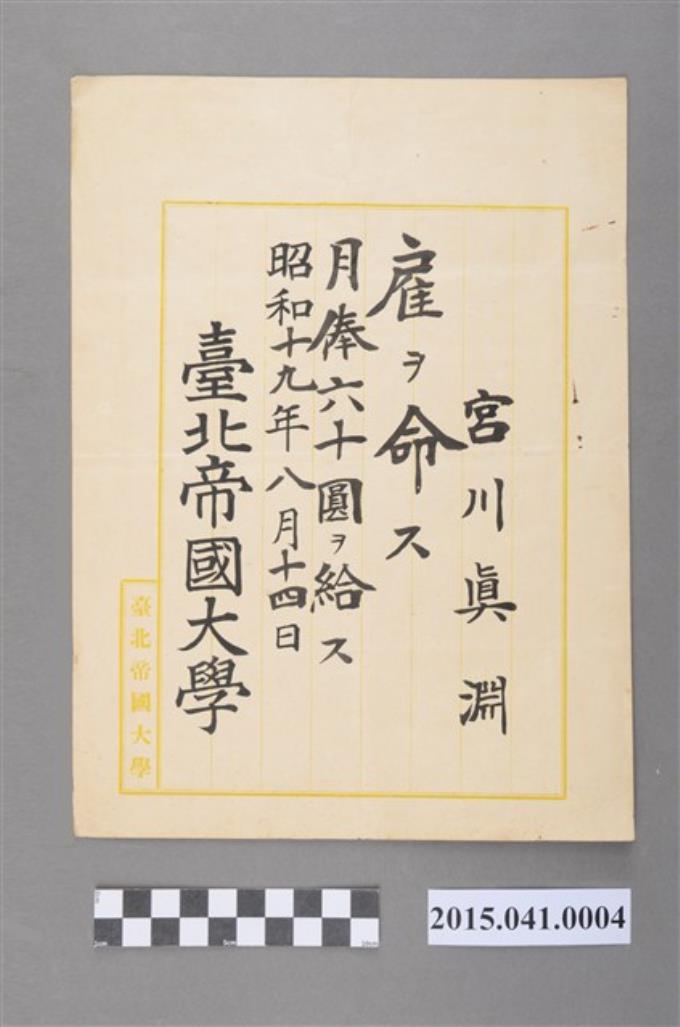 宮川眞淵
雇ヲ命ス
月俸六十圓ヲ給ス
昭和十九年八月十四日
臺北帝國大學
臺北帝國大學
2015.041.0004